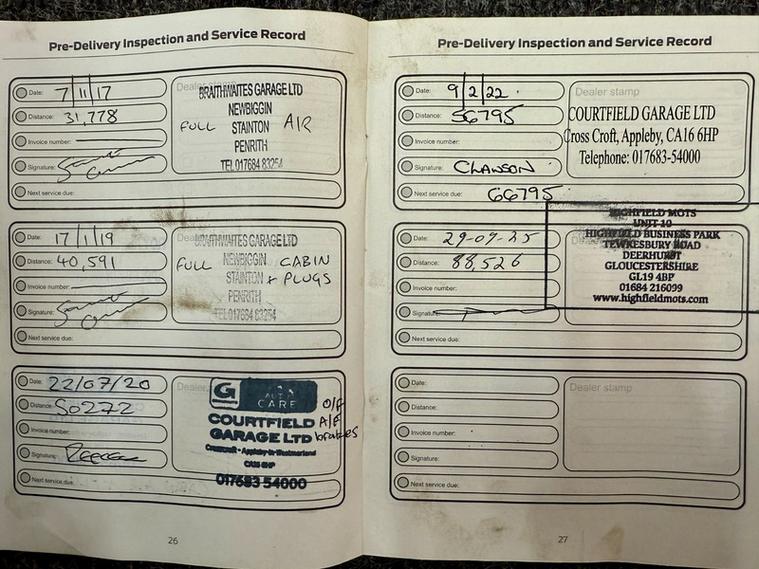 Pre-Delivery Inspection and Service Record
Date: 7/11/17
Distance: 31,778
Invoice number:
Signature:
Next service due:
Dealer stamp
BRAITHWAITES GARAGE LTD
NEWBIGGIN
FULL STAINTON AIR
PENRITH
TEL 017684 83254
Date: 17/1/19
Distance: 40,591
Invoice number:
Signature:
Next service due:
BRAITHWAITES GARAGE LTD
FULL NEWBIGGIN CABIN
STAINTON + PLUGS
PENRITH
TEL 017684 83254
Date: 22/07/20
Distance: 50272
Invoice number:
Signature:
Next service due:
Dealer
G
CARE O/F
COURTFIELD A/F
GARAGE LTD brakes
Crosscroft - Appleby-in-Westmorland
CA16 6HP
017683 54000
26
Pre-Delivery Inspection and Service Record
Date: 9/2/22.
Distance: 56795
Invoice number:
Signature: CLAWSON
Next service due: 66795
Dealer stamp
COURTFIELD GARAGE LTD
Cross Croft, Appleby, CA16 6HP
Telephone: 017683-54000
Date: 29-07-25
Distance: 88,526
Invoice number:
Signature:
Next service due:
HIGHFIELD MOTS
UNIT 10
HIGHFIELD BUSINESS PARK
TEWKESBURY ROAD
DEERHURST
GLOUCESTERSHIRE
GL19 4BP
01684 216099
www.highfieldmots.com
Date:
Distance:
Invoice number:
Signature:
Next service due:
Dealer stamp
27